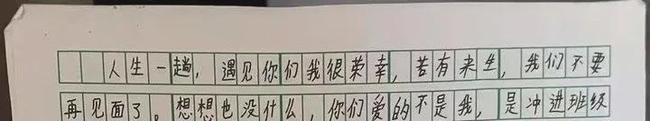 人生一趟，遇见你们我很荣幸，苦有来生，我们不要
再见面了。想想也没什么，你们爱的不是我，是冲进班级